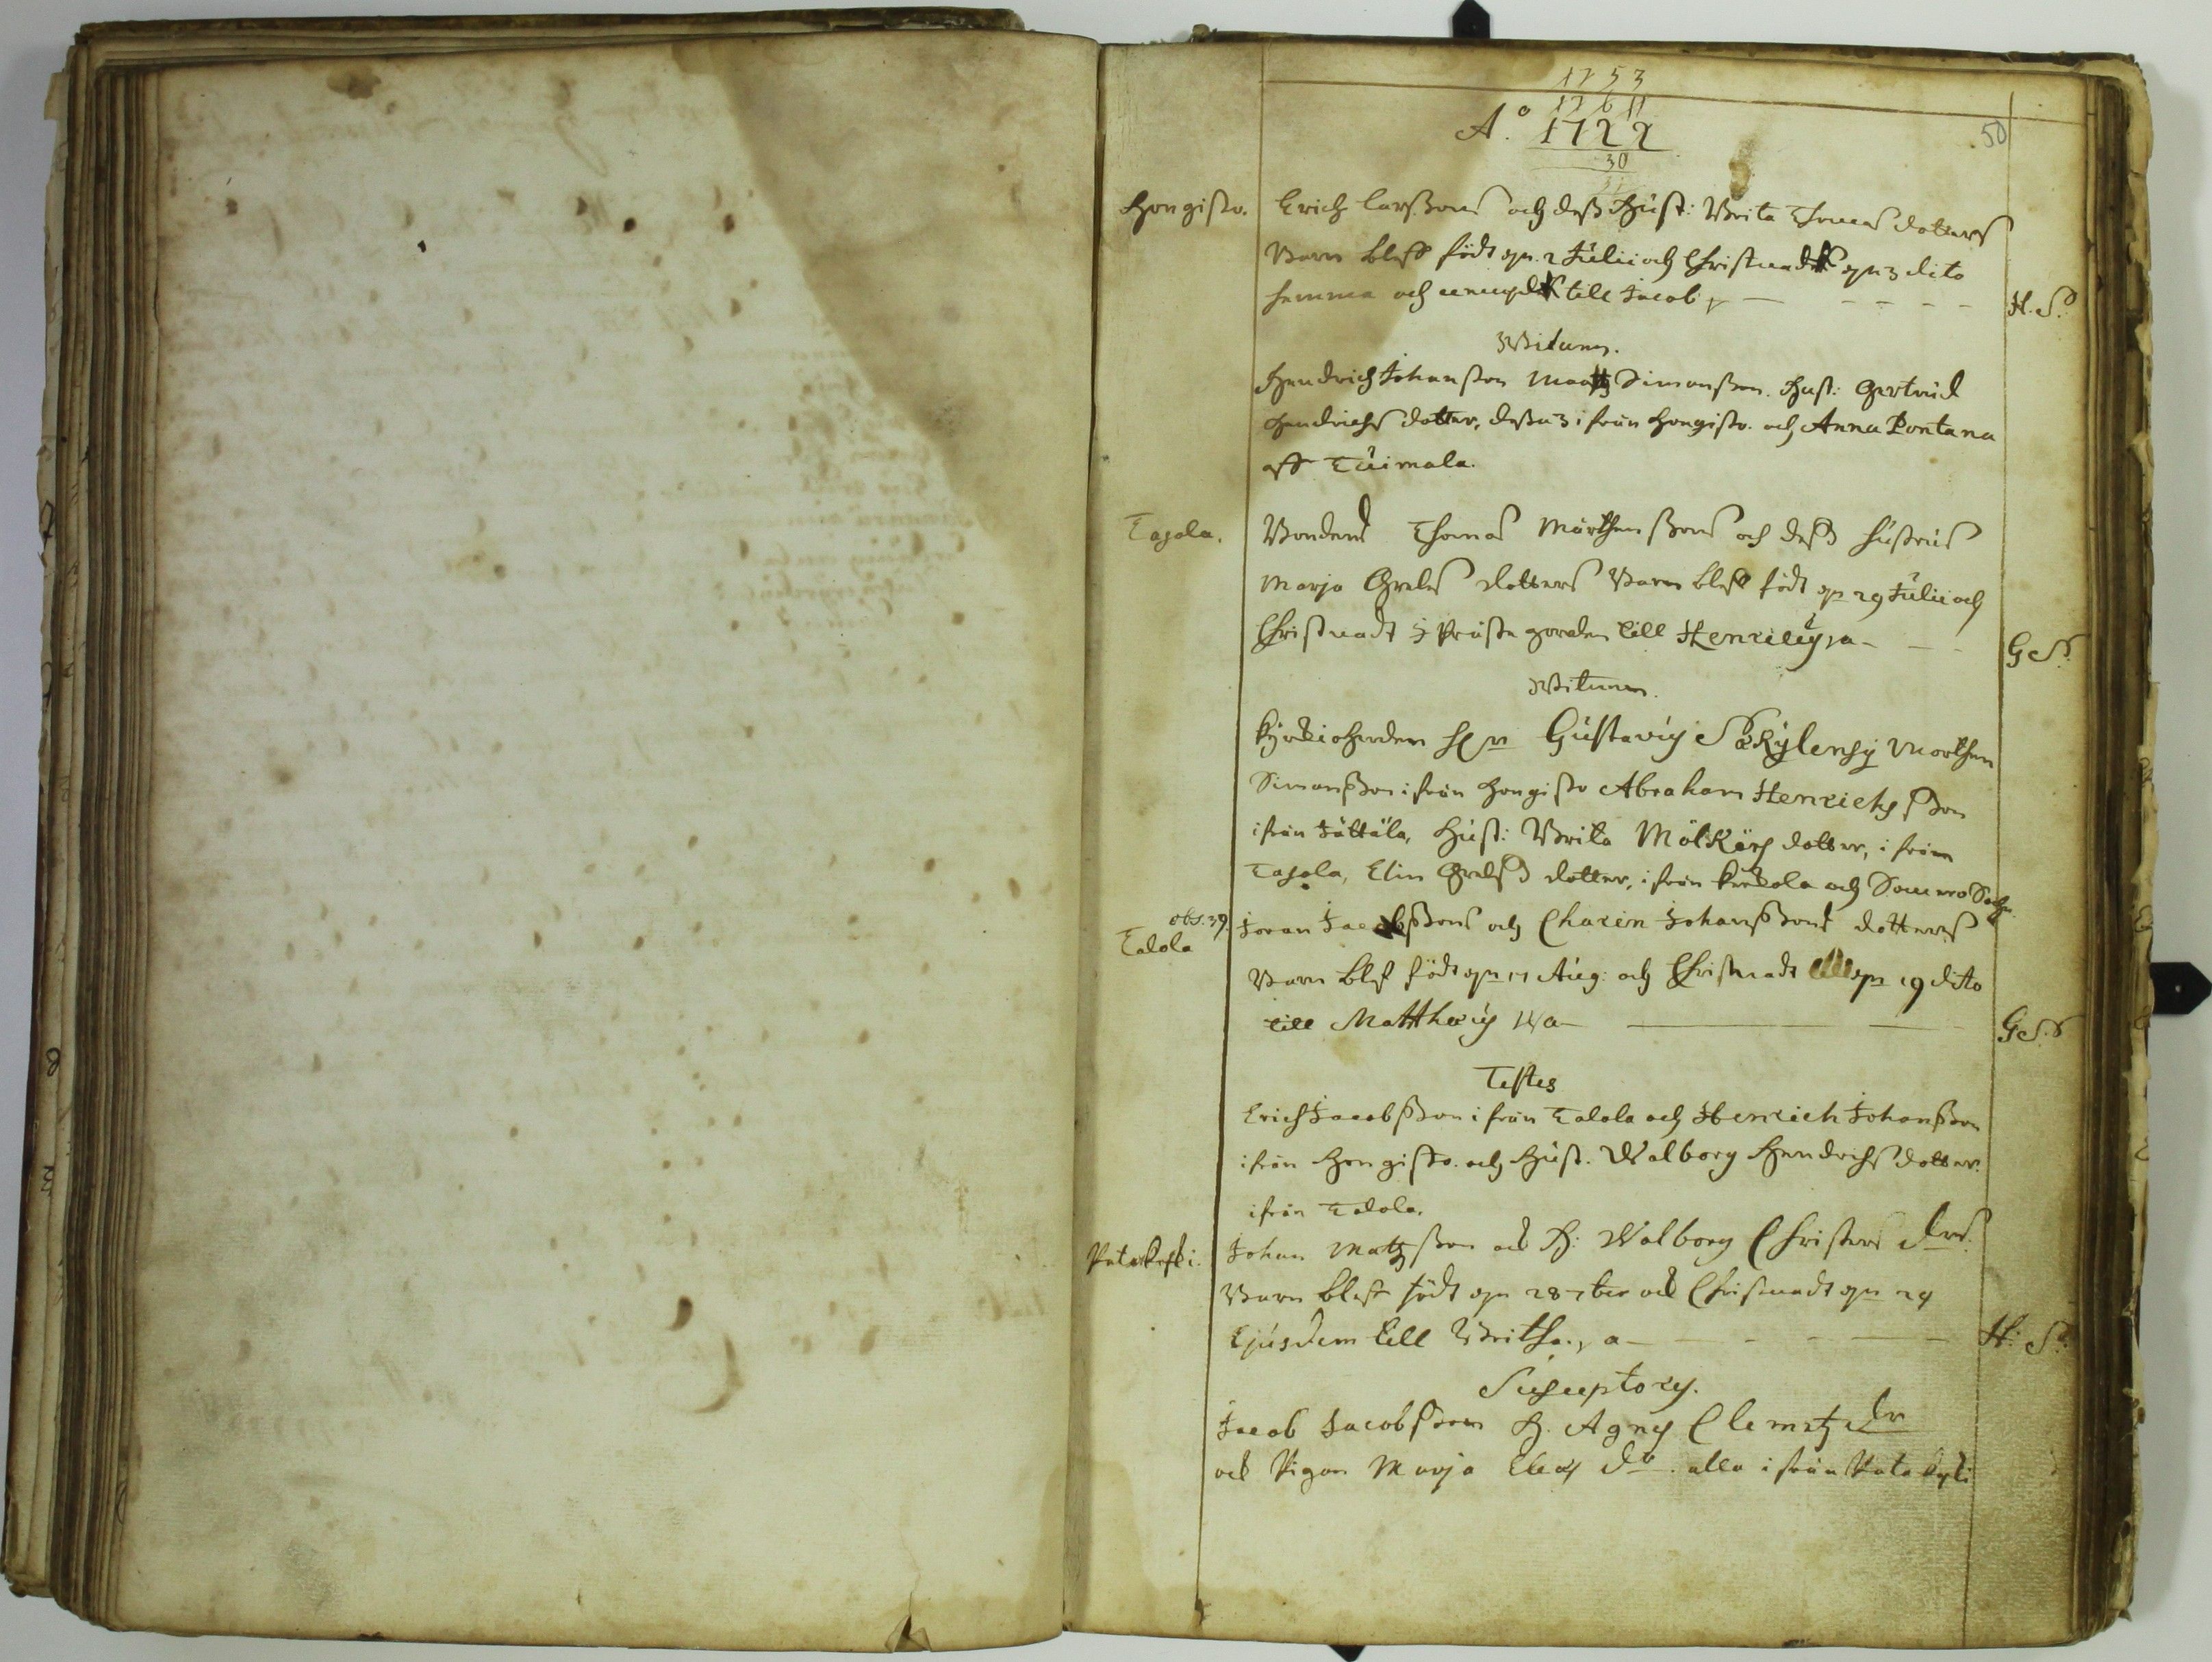 1753
1761
A.o 1722
30
50
Hongisto. Erich Larßons och deß Hust: Brita Thomas dotters
Barn bleff födt pn. 2 Julii och Christnadt pn 3 dito
hemma och till Jacob
H. S.
Witnen.
Hendrich Johanßon Matz Simonßon. Hust: Gertrud
Hendrichs dotter, deßa 3 ifrån Hongisto. och Anna Pontana
aff Tuimala.
Tasola. Bondens Thomas Mårthenßons och deß hustrus
Marja Grels dotters Barn bleff födt pn 29 Julii och
Christnadt j Prästegården till Henricus, a
G S.
Witnen.
Kyrkioherden Hr Gustavus Pækylensis Morthen
Simonßon ifrån Hongisto Abraham Henrichsßon
ifrån Jättälä, Hust: Brita dotter, ifrån
Tasola, Elin Grelß dotter, ifrån Kerkola och Somero Sochn
obs. 39.
Talola Joran Jacobßons och Charin Johanßons dotters
Barn bleff födt pn 17 Aug: och Christnadt pn 19 dito
till Matthæus
G S.
Testes
Erich Jacobßon ifrån Talola och Henrich Johanßon
ifrån Hongisto. och Hust. Walborg Hendrichs dotter.
ifrån Talola.
Palakoski. Johan Matzßon och H: Walborg Christers drs.
Barn bleff födt pn 28 7ber och Christnadt pn 29
Ejusdem till Britha., a
H: S.
Susceptores.
Jacob Jacobßon H. Agnes Clemetz dr
och Pigan Marja dr. alla ifrån